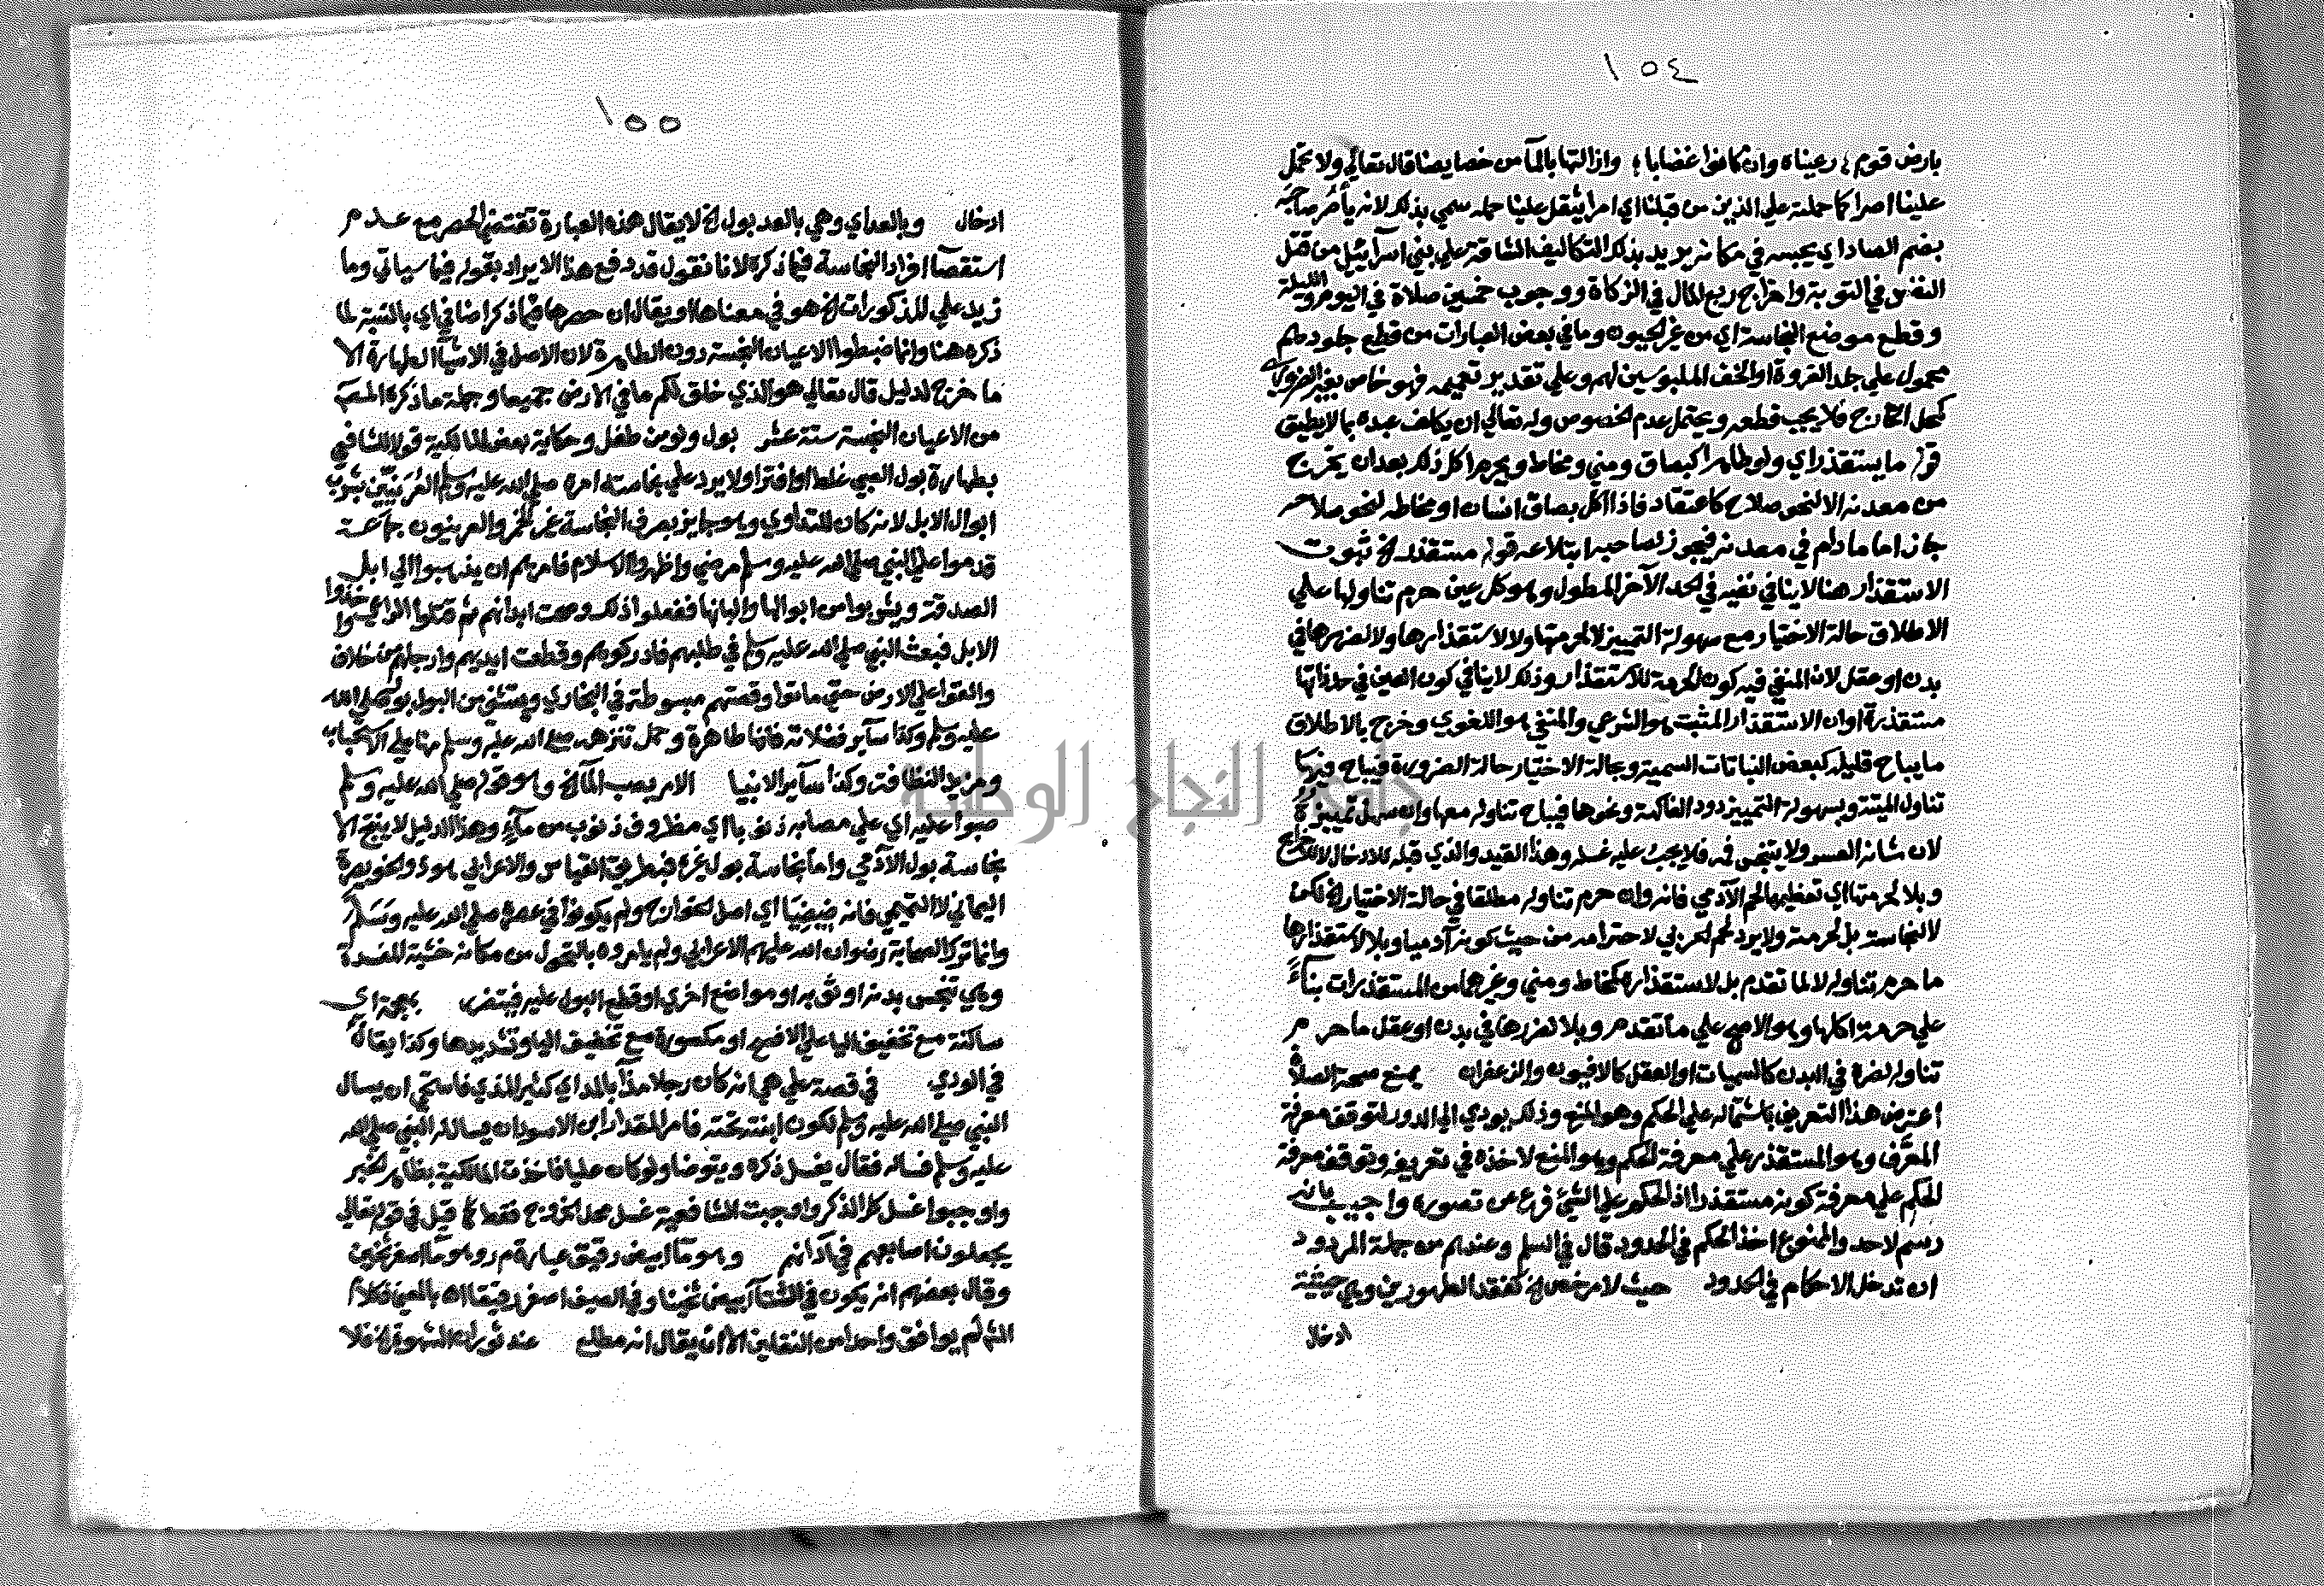 ١٥٤
بارض قوم رعيناه وان كانوا غضابا وازالتها بالمآ من خصايصنا قال تعالي ولا تحمل
علينا اصرا كما حملته علي الذين من قبلنا اي امرا يثقل علينا حمله سمي بذلك لانه يأصر صاحبه
بضم الصاد اي يحبسه في مكانه يريد بذلك التكاليف الشاقة علي بني اسرآئيل من قتل
النفس في التوبة واخراج ربع المال في الزكاة ووجوب خمسين صلاة في اليوم والليلة
وقطع موضع النجاسة اي من غير الحيوان وما في بعض العبارات من قطع جلودهم
محمول علي جلد الفروة او الخف الملبوسين لهم وعلي تقدير تعميمه فهو خاص بغير
كمحل الخارج فلا يجب قطعه ويحتمل عدم الخصوص وله تعالي ان يكلف عبده بما لا يطيق
قوله ما يستقذر اي ولو طاهرا كبصاق ومني ومخاط ويحرم اكل ذلك بعد ان يخرج
من معدنه الا لنحو صلاح كاعتقاد فاذا اكل بصاق انسان او مخاطه لنحو صلاحه
جاز اما ما دام في معدنه فيجوز لصاحبه ابتلاعه قوله مستقذر الخ ثبوت
الاستقذار هنا لا ينافي نفيه في الحد الآخر المطول وهو كل عين حرم تناولها علي
الاطلاق حالة الاختيار مع سهولة التمييز لا لحرمتها ولا لاستقذارها ولا لضررها في
بدن او عقل لان المنفي فيه كون الحرمة للاستقذار وذلك لا ينافي كون العين في حد ذاتها
مستقذرة او ان الاستقذار المثبت هو الشرعي والمنفي هو اللغوي وخرج بالاطلاق
ما يباح قليله كبعض النباتات السمية وبحالة الاختيار حالة الضرورة فيباح فيها
تناول الميتة وبسهولة التمييز دود الفاكهة ونحوها فيباح تناوله معها وان سهل تمييزه
لان شانه العسر ولا يتنجس فمه فلا يجب عليه غسله وهذا القيد والذي قبله للادخال لا للاخراج
وبلا لحرمتها اي تعظيمها لحم الآدمي فانه وان حرم تناوله مطلقا في حالة الاختيار الخ لكن
لا لنجاسته بل لحرمته ولا يرد لحم الحربي لاحترامه من حيث كونه آدميا وبلا لاستقذارها
ما حرم تناوله لا لما تقدم بل لاستقذاره كمخاط ومني وغيرهما من المستقذرات بنآءً
علي حرمة اكلها وهو الاصح علي ما تقدم وبلا لضررها في بدن او عقل ما حرم
تناوله لضره في البدن كالسميات او العقل كالافيون والزعفران يمنع صحة الصلاة
اعترض هذا التعريف باشتماله علي الحكم وهو المنع وذلك يودي الي الدور لتوقف معرفة
المعرَّف وهو المستقذر علي معرفة الحكم وهو المنع لاخذه في تعريفه وتوقف معرفة
الحكم علي معرفة كونه مستقذرا اذ الحكم علي الشئ فرع عن تصوره واجيب بانه
رسم لا حد والممنوع اخذ الحكم في الحدود قال في السلم وعندهم من جملة المردود
ان تدخل الاحكام في الحدود حيث لا مرخص الخ كفقد الطهورين وهي حيثية
ادخال
١٥٥
ادخال وبالعد اي وهي بالعد بول الخ لا يقال هذه العبارة تقتضي الحصر مع عدم
استقصآ افراد النجاسة فيما ذكره لانا نقول قد دفع هذا الايراد بقوله فيما سياتي وما
زيد علي المذكورات الخ هو في معناها او يقال ان حصرها فيما ذكر اضافي اي بالنسبة لما
ذكره هنا وانما ضبطوا الاعيان النجسة دون الطاهرة لان الاصل في الاشيآ الطهارة الا
ما خرج لدليل قال تعالي هو الذي خلق لكم ما في الارض جميعا وجملة ما ذكره المصنف
من الاعيان النجسة ستة عشر بول ولو من طفل وحكاية بعض المالكية قولا للشافعي
بطهارة بول الصبي غلط او افترا ولا يرد علي نجاسته امره صلي الله عليه وسلم العُرَنيّين بشرب
ابوال الابل لانه كان للتداوي وهو جايز بصرف النجاسة غير الخمر والعرنيون جماعة
قدموا علي النبي صلي الله عليه وسلم مرضي واظهروا الاسلام فامرهم ان يذهبوا الي ابل
الصدقة ويشربوا من ابوالها والبانها ففعلوا ذلك وصحت ابدانهم ثم قتلوا الراعي واخذوا
الابل فبعث النبي صلي الله عليه وسلم في طلبهم فادركوهم وقطعت ايديهم وارجلهم من خلاف
والقوا علي الارض حتي ماتوا وقصتهم مبسوطة في البخاري ويستثني من البول بوله صلي الله
عليه وسلم وكذا سآير فضلاته فانها طاهرة وحمل تنزهه صلي الله عليه وسلم منها علي الاستحباب
ومزيد النظافة وكذا سآير الانبيا الامر بصب المآ الخ وهو قوله صلي الله عليه وسلم
صبوا عليه اي علي مصابه ذنوبا اي مظروف ذنوب من مآءٍ وهذا الدليل لا ينتج الا
نجاسة بول الآدمي واما نجاسة بول غيره فبطريق القياس والاعرابي هو ذو الخويصرة
اليماني لا التميمي فانه ضِئضِئ اي اصل الخوارج ولم يكونوا في عصره صلي الله عليه وَسَلَم
وانما ترك الصحابة رضوان الله عليهم الاعرابي ولم يامروه بالتحول من مكانه خشية المفسدة
وهي تنجس بدنه او ثوبه او مواضع اخري او قطع البول عليه فيتضرر بمعجمة اي
ساكنة مع تخفيف اليا علي الافصح او مكسورة مع تخفيف اليا وتشديدها وكذا يقال
في الودي في قصة علي هي انه كان رجلا مذآ بالمد اي كثير المذي فاستحي ان يسال
النبي صلي الله عليه وسلم لكون ابنته تحته فامر المقداد ابن الاسود ان يسال له النبي صلي الله
عليه وسلم فساله فقال يغسل ذكره ويتوضا ولو كان عليا فاخذت المالكية بظاهر الخبر
واوجبوا غسل كل الذكر واوجبت الشافعية غسل محل الخروج فقط كما قيل في قوله تعالي
يجعلون اصابعهم في آذانهم وهو مآ ابيض رقيق عبارة م ر وهو مآ اصفر ثخين
وقال بعضهم انه يكون في الشتآ ابيض ثخينا وفي الصيف اصفر رقيقا اه بالمعني فكلام
الش لم يوافق واحدا من النقلين الا ان يقال انه مطلع عند ثوران الشهوة الخ فلا
جامعة النجاح الوطنية